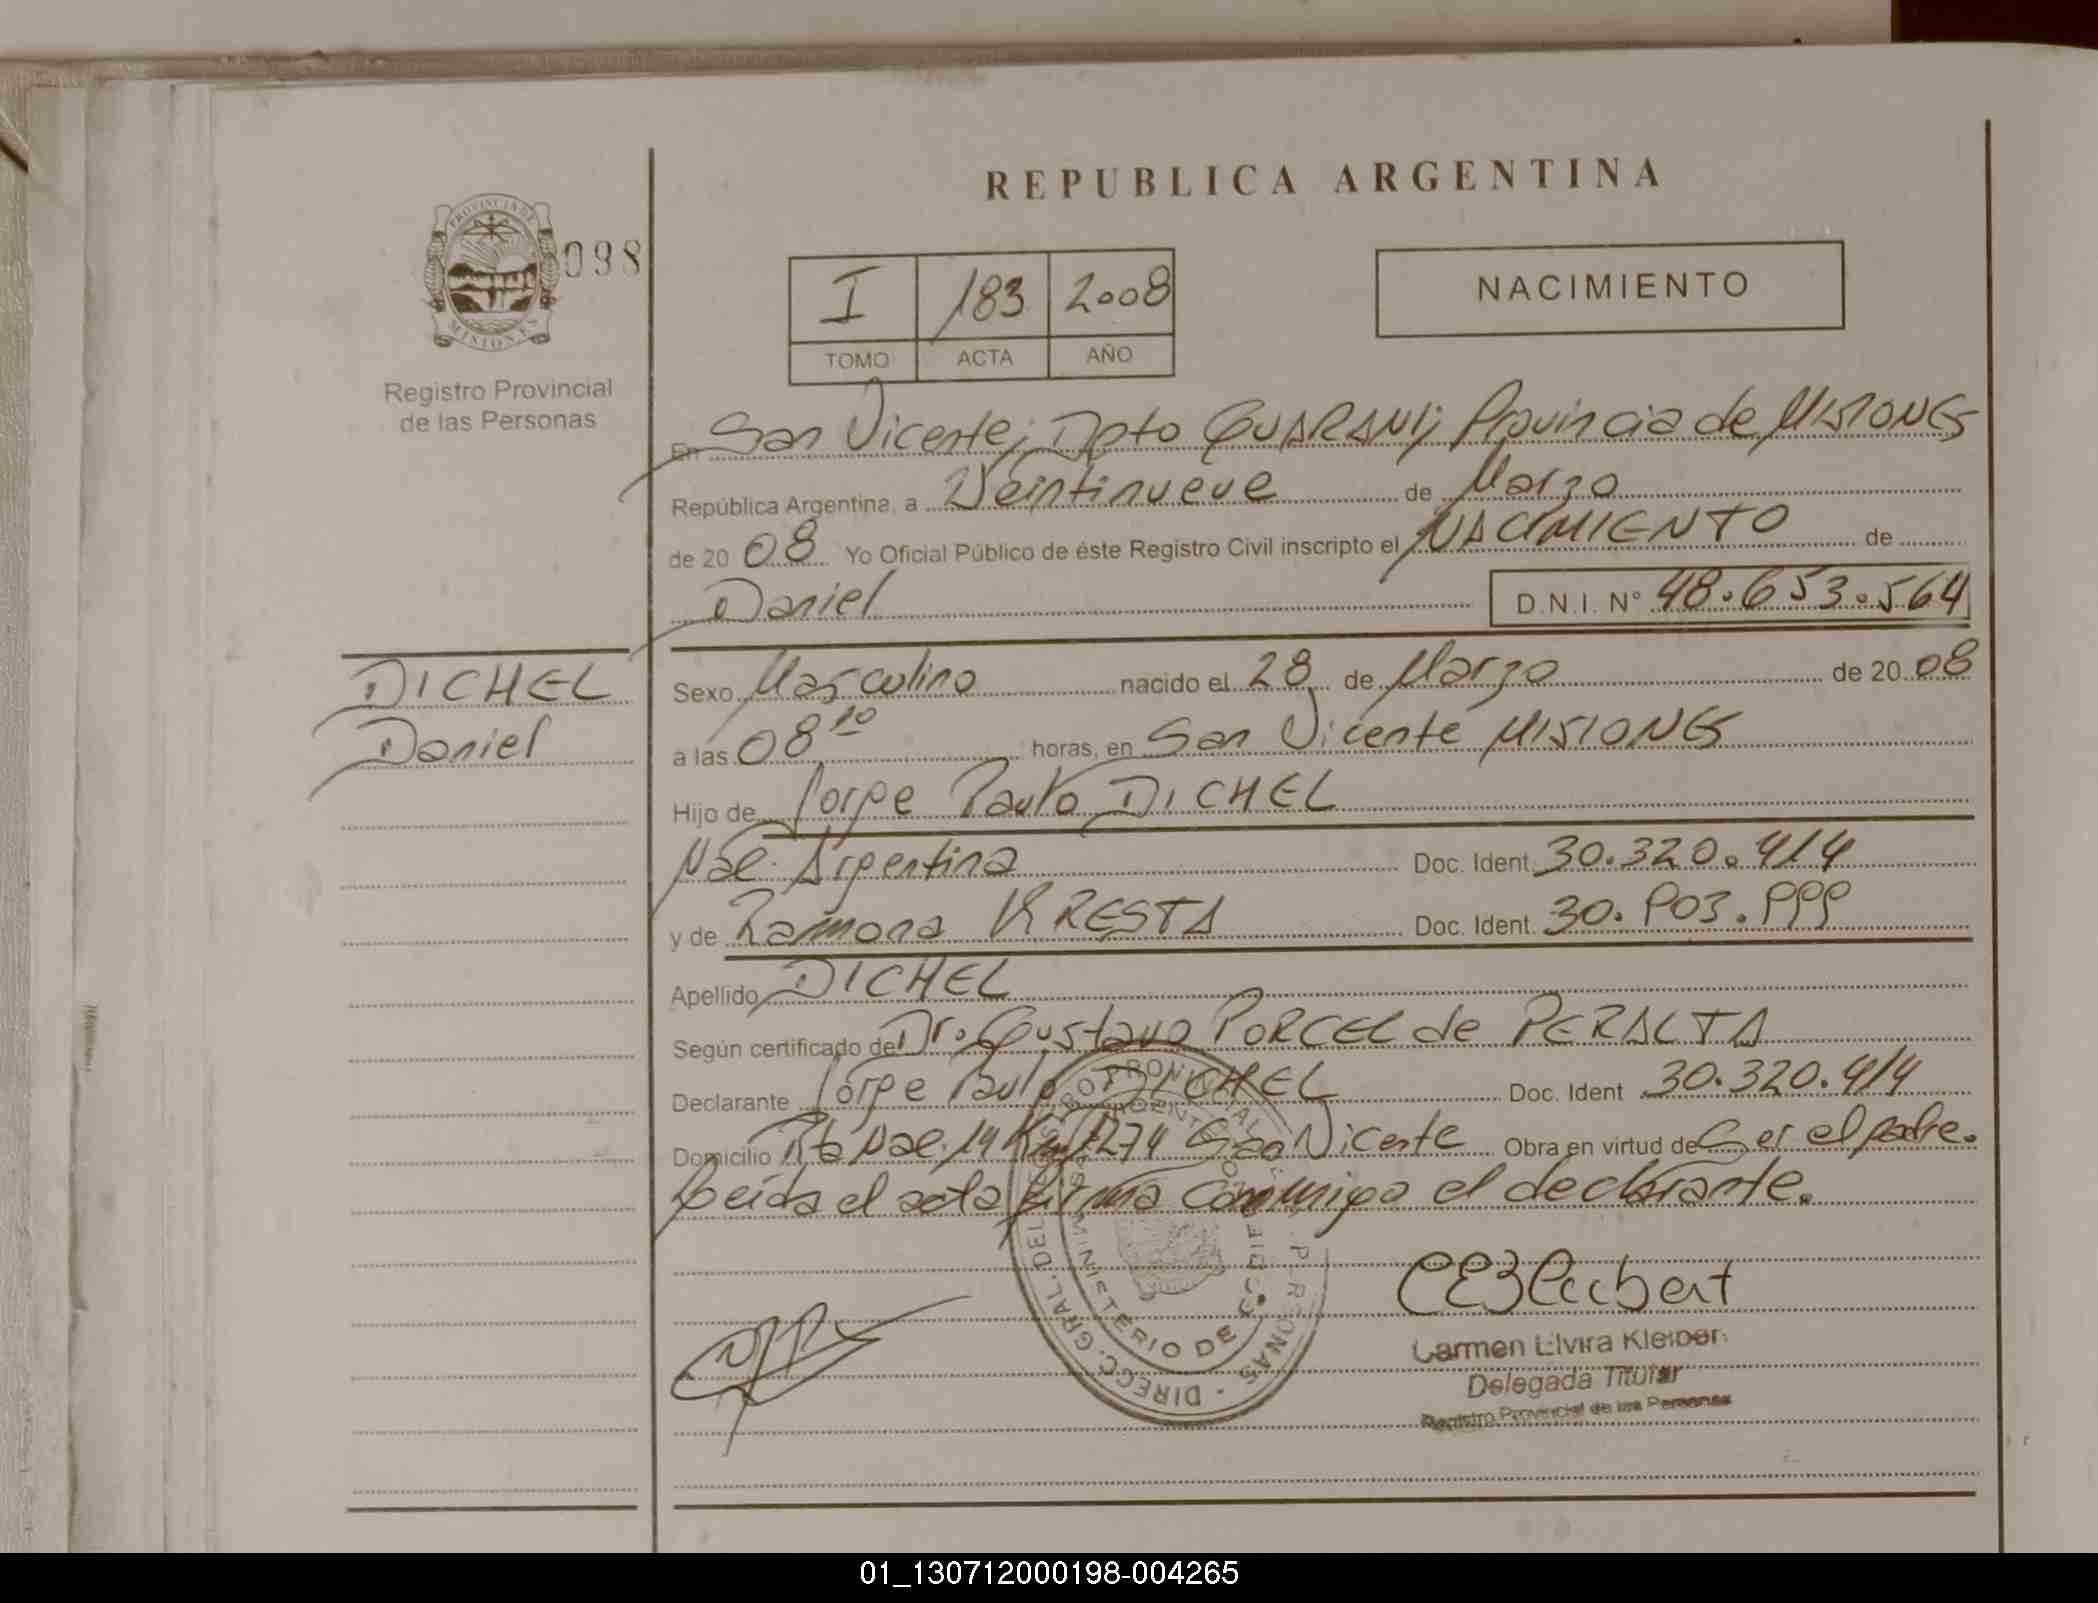 REPUBLICA ARGENTINA
PROVINCIA DE
MISIONES
098
Registro Provincial
de las Personas
I 183 2008
TOMO ACTA AÑO
NACIMIENTO
En San Vicente, Dpto GUARANI; Provincia de MISIONES
República Argentina, a Veintinueve de Marzo
de 2008 Yo Oficial Público de éste Registro Civil inscripto el NACIMIENTO de
Daniel D.N.I. Nº 48.653.564
DICHEL
Daniel
Sexo Masculino nacido el 28 de Marzo de 2008
a las 08 10 horas, en San Vicente MISIONES
Hijo de Jorge Paulo DICHEL
Nac. Argentina Doc. Ident. 30.320.414
y de Ramona KRESTA Doc. Ident. 30.903.999
Apellido DICHEL
Según certificado de Dr. Gustavo PORCEL de PERALTA
Declarante Jorge Paulo DICHEL Doc. Ident 30.320.414
Domicilio Rta Nac. 14 Km 1274 San Vicente Obra en virtud de Ser el padre.
Leida el acta firma conmigo el declarante.
DIRECC. GRAL. DEL PERSONAS
MINISTERIO DE
Carmen Elvira Kleiber
Delegada Titular
Registro Provincial de las Personas
01_130712000198-004265